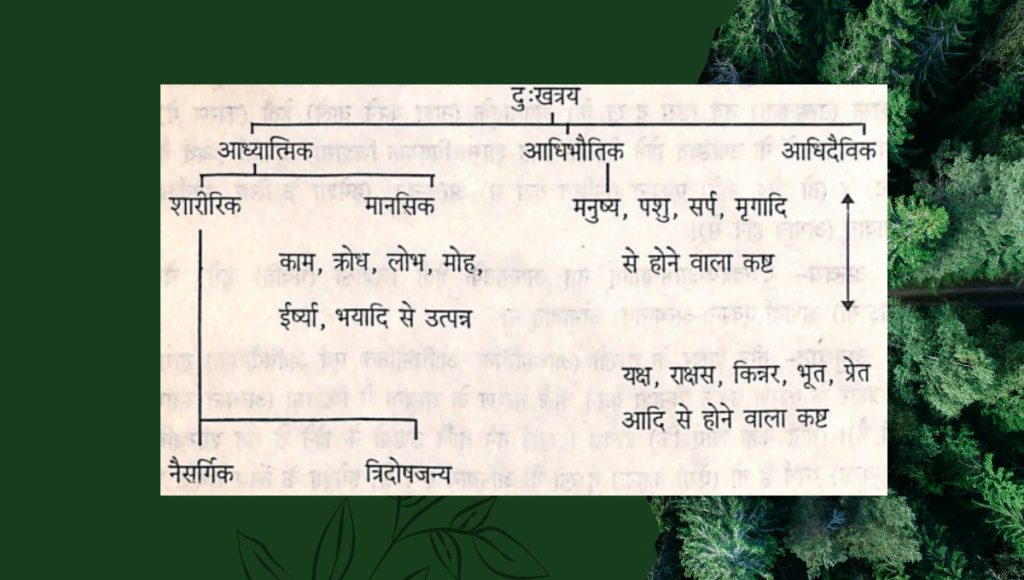 दुःखत्रय
आध्यात्मिक आधिभौतिक आधिदैविक
शारीरिक मानसिक मनुष्य, पशु, सर्प, मृगादि
काम, क्रोध, लोभ, मोह, से होने वाला कष्ट
ईर्ष्या, भयादि से उत्पन्न
यक्ष, राक्षस, किन्नर, भूत, प्रेत
आदि से होने वाला कष्ट
नैसर्गिक त्रिदोषजन्य